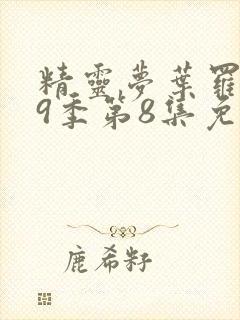 精靈夢葉羅
9季第8集免
鹿希籽